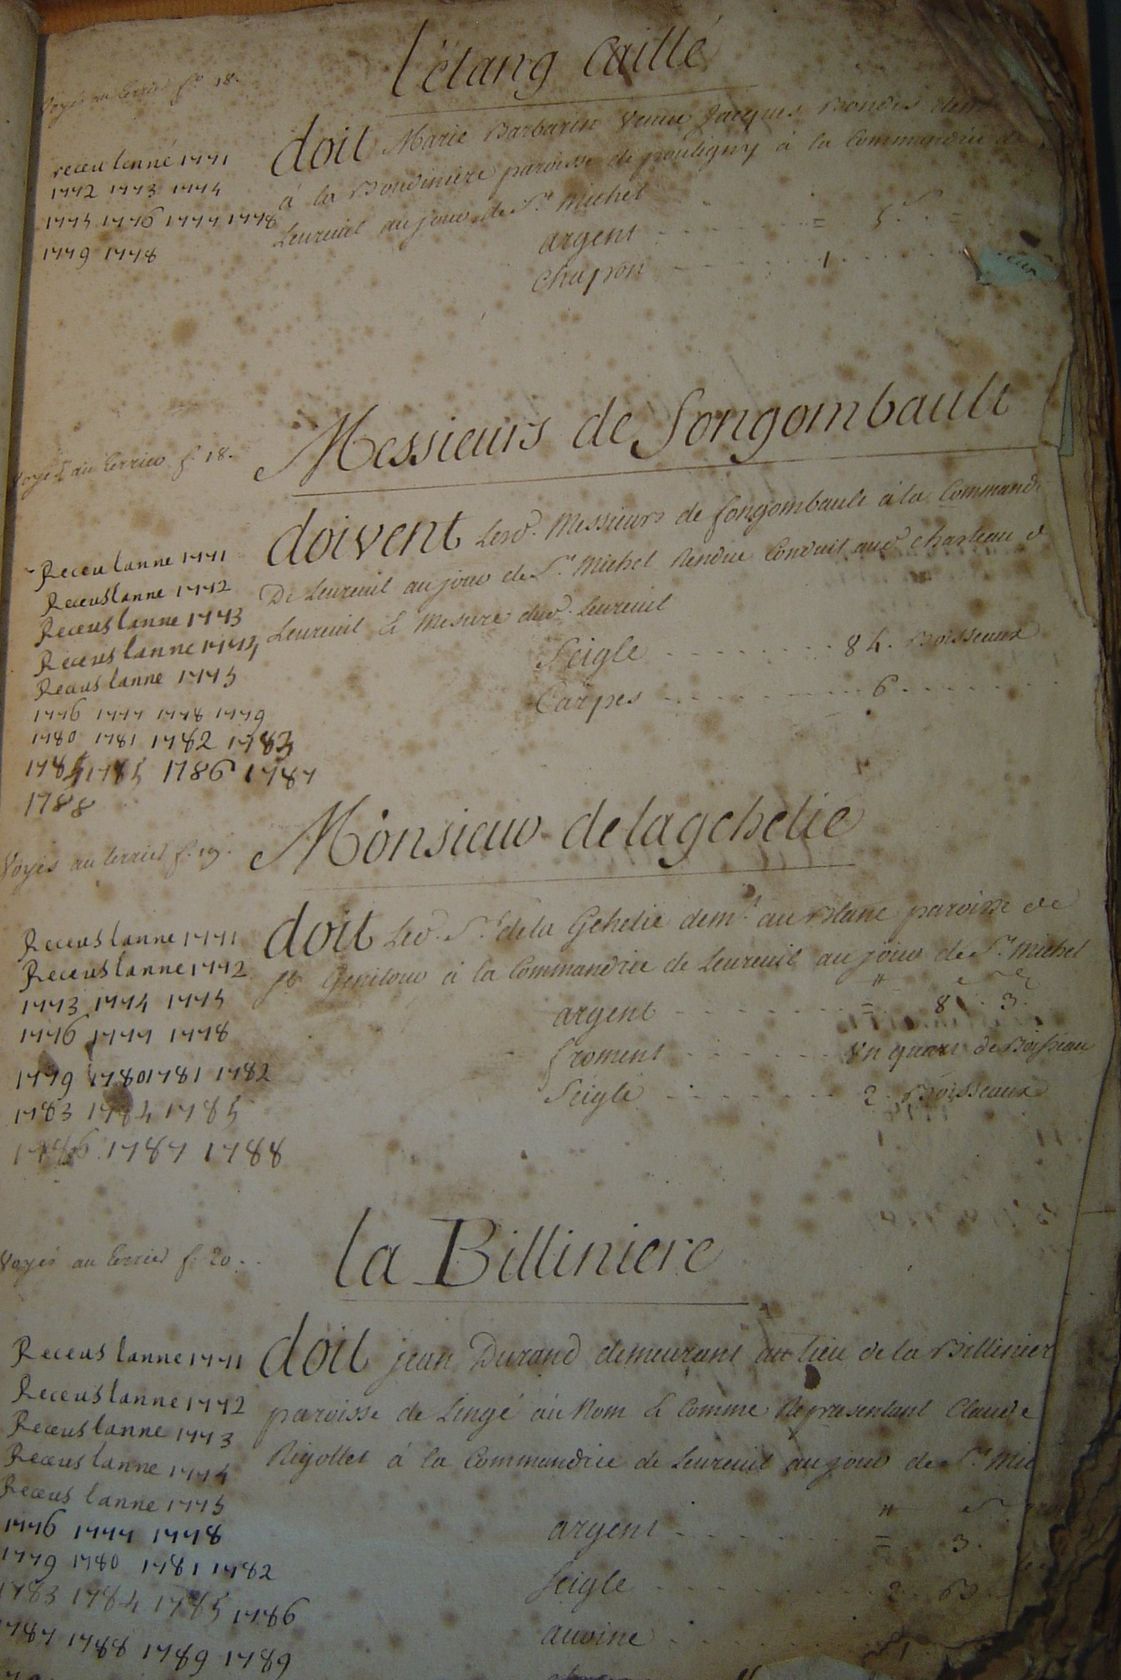 l'étang Caillé
Voyés au terrier f.º 18.
doit Marie Barbarin Veuve Jacques
à la Boudiniere paroisse de pouligny à la Commanderie de
Leureuil au jour de S.t Michel
argent 5 s.
Chapon 1
receu lanné 1771
1772 1773 1774
1775 1776 1777 1778
1779 1778
Messieurs de fongombault
Voyés au terrier f. 18.
doivent Lesd. Messieurs de fongombault à la Command
De Leureuil au jour de S.t Michel Rendue Conduit aud. chasteau d
Leureuil & Mesure dud. Leureuil
Seigle 84. Boisseaux
Carpes 6
Receu lanne 1771
Receus lanne 1772
Receus lanne 1773
Receus lanne 1774
Receus lanne 1775
1776 1777 1778 1779
1780 1781 1782 1783
1784 1785 1786 1787
1788
Monsieur de lagehelie
Voyés au terrier f. 19.
doit Led. S.r de la Gehelie dem.t au Blanc paroisse de
S.t Genitour à la Commandrie de Leureuil au jour de S.t Michel
argent = 8 s. 3.
froment Un quart de Boisseau
Seigle 2. Boisseaux
Receus lanne 1771
Receus lanne 1772
1773 1774 1775
1776 1777 1778
1779 1780 1781 1782
1783 1784 1785
1786 1787 1788
la Billiniere
Voyés au terrier f. 20.
doit jean Durand demeurant au lieu de la Billinier
paroisse de Lingé au Nom & Comme Representant Claude
Rigollet à la Commandrie de Leureuil au jour de S.t Mic
argent = 3.
Seigle 2. B
avoine 1
Receus lanne 1771
Receus lanne 1772
Receus lanne 1773
Receus lanne 1774
Receus lanne 1775
1776 1777 1778
1779 1780 1781 1782
1783 1784 1785 1786
1787 1788 1789 1789